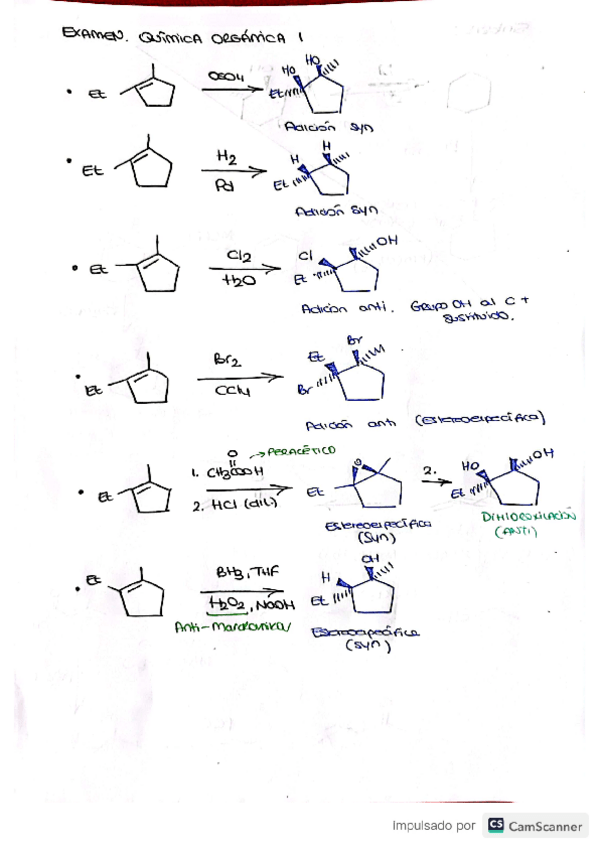 EXAMEN. QUÍMICA ORGÁNICA 1
Et OsO4 HO HO Et
Adición syn
Et H2 Pd H H Et
Adición syn
Et Cl2 H2O Cl OH Et
Adición anti. Grupo OH al C +
sustituido.
Et Br2 CCl4 Et Br Br
Adición anti (estereoespecífica)
O → PERACÉTICO
Et 1. CH3COOH O Et 2. HO OH Et
2. HCl (dil.)
Estereoespecífica
(syn)
DIHIDROXILACIÓN
(ANTI)
Et BH3, THF H OH Et
H2O2, NaOH
Anti-Markovnikov
Estereoespecífica
(syn)
Impulsado por CS CamScanner